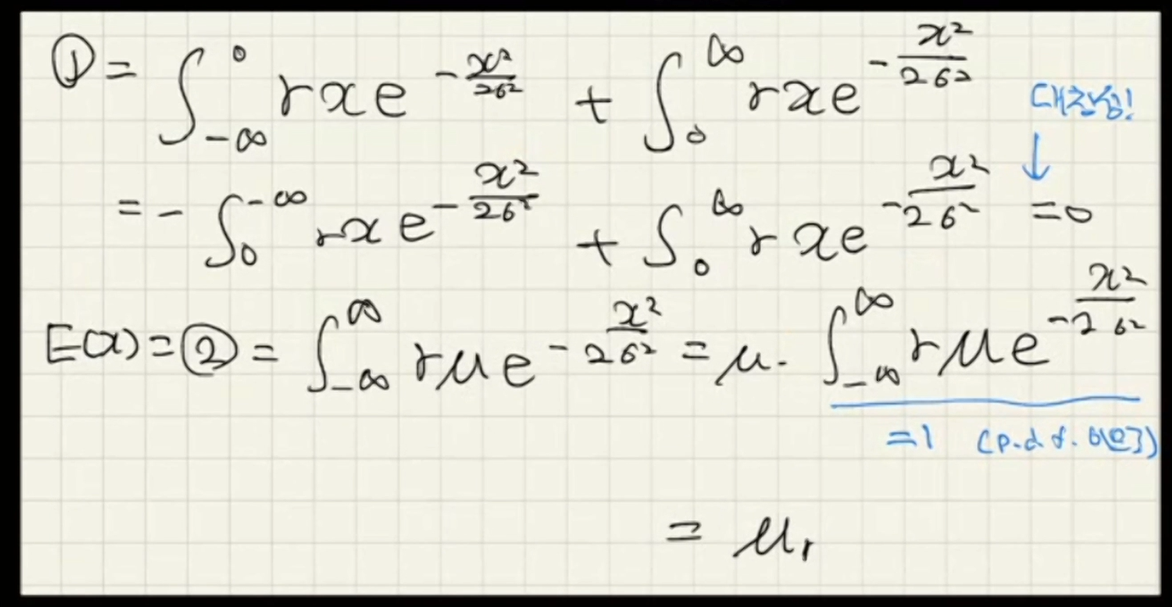 ① = ∫_{-∞}^{0} rxe^{-x²/2σ²} + ∫_{0}^{∞} rxe^{-x²/2σ²}
대칭성!
↓
= - ∫_{0}^{-∞} rxe^{-x²/2σ²} + ∫_{0}^{∞} rxe^{-x²/2σ²} = 0
E(x) = ② = ∫_{-∞}^{∞} rμe^{-x²/2σ²} = μ· ∫_{-∞}^{∞} rμe^{-x²/2σ²}
=1 (p.d.f.
= μ,